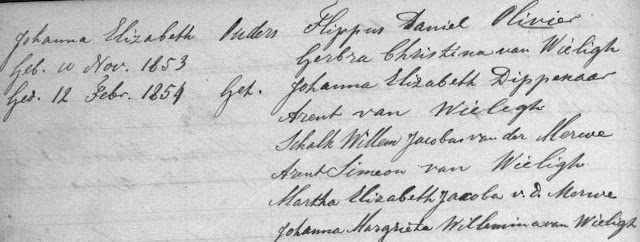 Johanna Elizabeth Ouders Flippus Daniel Olivier
Geb. 10 Nov. 1853 Gerbra Christina van Wieligh
Ged. 12 Febr. 1854 Get. Johanna Elizabeth Dippenaar
Arent van Wielegh
Schalk Willem Jacobus van der Merwe
Arent Simeon van Wieligh
Martha Elizabeth Jacoba v. d. Merwe
Johanna Margrieta Willemina van Wieligh